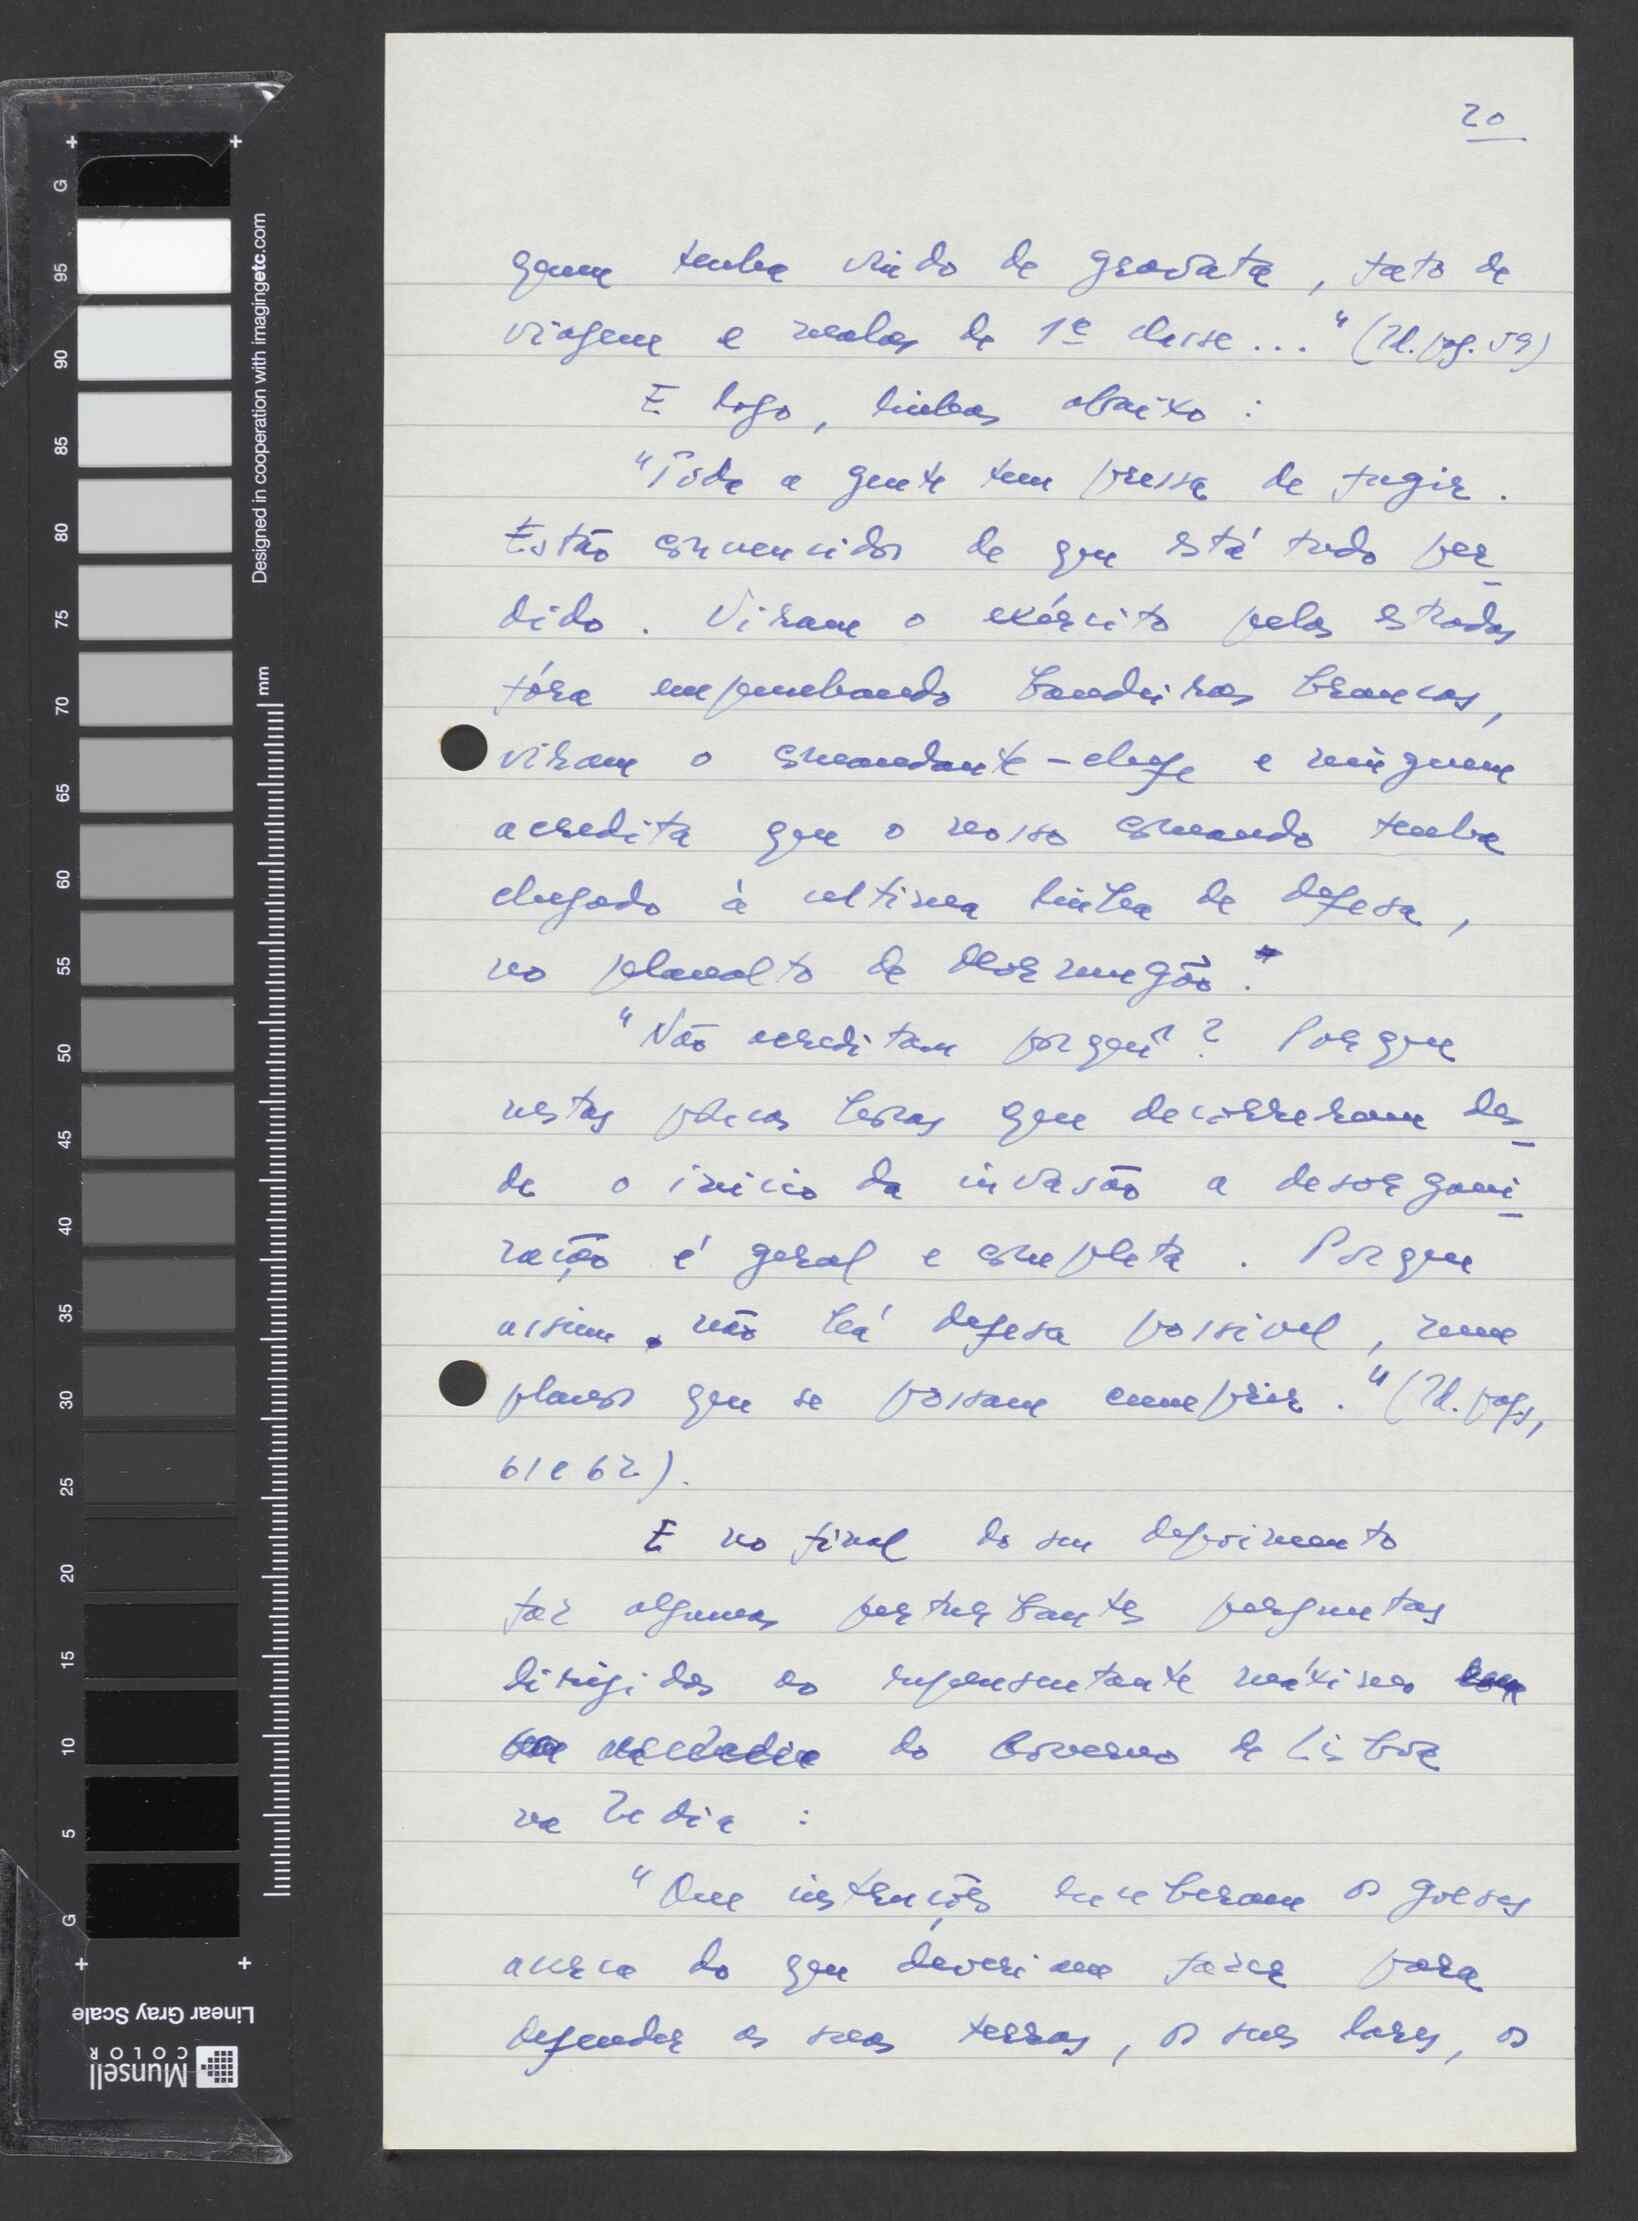 20
quem tenha vindo de gravata, fato de
viagem e malas de 1ª classe..." (Id. pag. 59)
E logo, linhas abaixo:
"Tôda a gente tem pressa de fugir.
Estão convencidos de que está tudo per-
dido. Viram o exército pelas estradas
fóra empunhando bandeiras brancas,
viram o comandante-chefe e ninguem
acredita que o nosso comando tenha
chegado à ultima linha de defesa,
no planalto de Mormugão."
"Não acreditam porquê? Porque
nestas poucas horas que decorreram des-
de o inicio da invasão a desorgani-
zação é geral e completa. Porque
assim, não há defesa possivel, nem
planos que se possam cumprir." (Id. pags,
61 e 62).
E no final do seu depoimento
faz algumas perturbantes perguntas
dirigidas ao representante máximo
do Governo de Lisboa
na India:
"Que instruções receberam os goeses
acerca do que deveriam fazer para
defender as suas terras, os seus lares, os
95
90
85
80
75
70
65
60
55
50
45
40
35
30
25
20
15
10
5
G
G
mm
Designed in cooperation with imagingetc.com
Linear Gray Scale
Munsell
COLOR